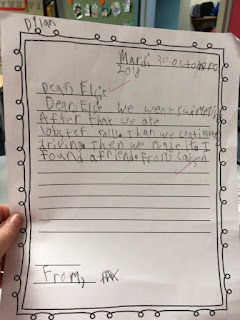 Dylan
Mardi 30 octobre
2018
Dear Elsie
Dear Elsie we went swimming
After that we ate
lobster rolls. than we continue
driving. then we made it. I
found a friend. From
From,